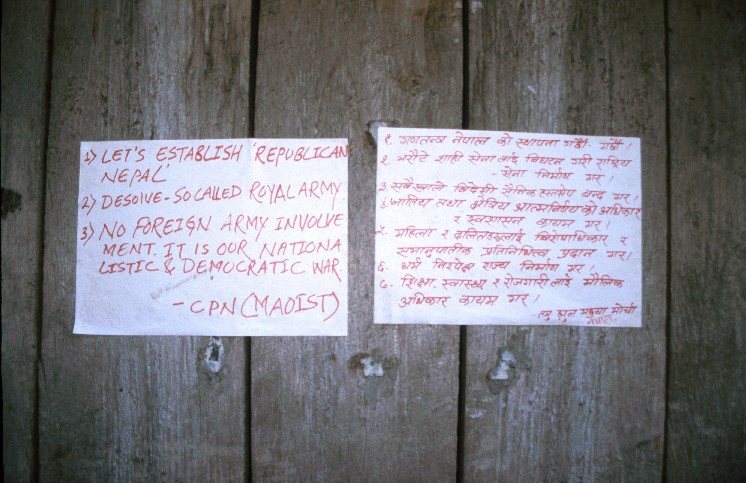 1) LET'S ESTABLISH 'REPUBLICAN
NEPAL'
2) DESOLVE-SO CALLED ROYAL ARMY
3) NO FOREIGN ARMY INVOLVE
MENT. IT IS OUR NATIONA
LISTIC & DEMOCRATIC WAR.
- CPN (MAOIST)
१. गणतन्त्र नेपाल को स्थापना गरौं!
२. भरौटे शाही सेनालाई विघटन गरी राष्ट्रिय
- सेना निर्माण गर!
३. सबैखाले विदेशी सैनिक हस्तक्षेप बन्द गर!
४. जातिय तथा क्षेत्रिय आत्मनिर्णय को अधिकार
र स्वशासन कायम गर!
५. महिला र दलितहरूलाई विशेषाधिकार र
समानुपातीक प्रतिनिधित्व प्रदान गर!
६. धर्म निरपेक्ष राज्य निर्माण गर!
७. शिक्षा, स्वास्थ्य र रोजगारीलाई मौलिक
अधिकार कायम गर!
मोर्चा